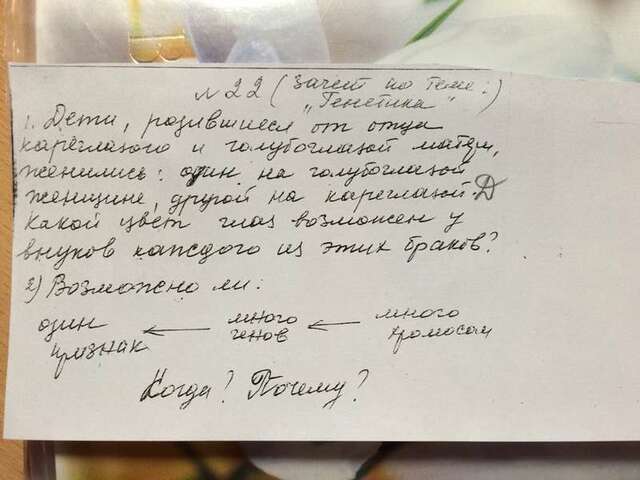 № 22 (Зачет по теме:
"Генетика")
1. Дети, родившиеся от отца
кареглазого и голубоглазой матери,
женились: один на голубоглазой
женщине, другой на кареглазой. Д
Какой цвет глаз возможен у
внуков каждого из этих браков?
2) Возможно ли:
один признак ← много генов ← много хромосом
Когда? Почему?